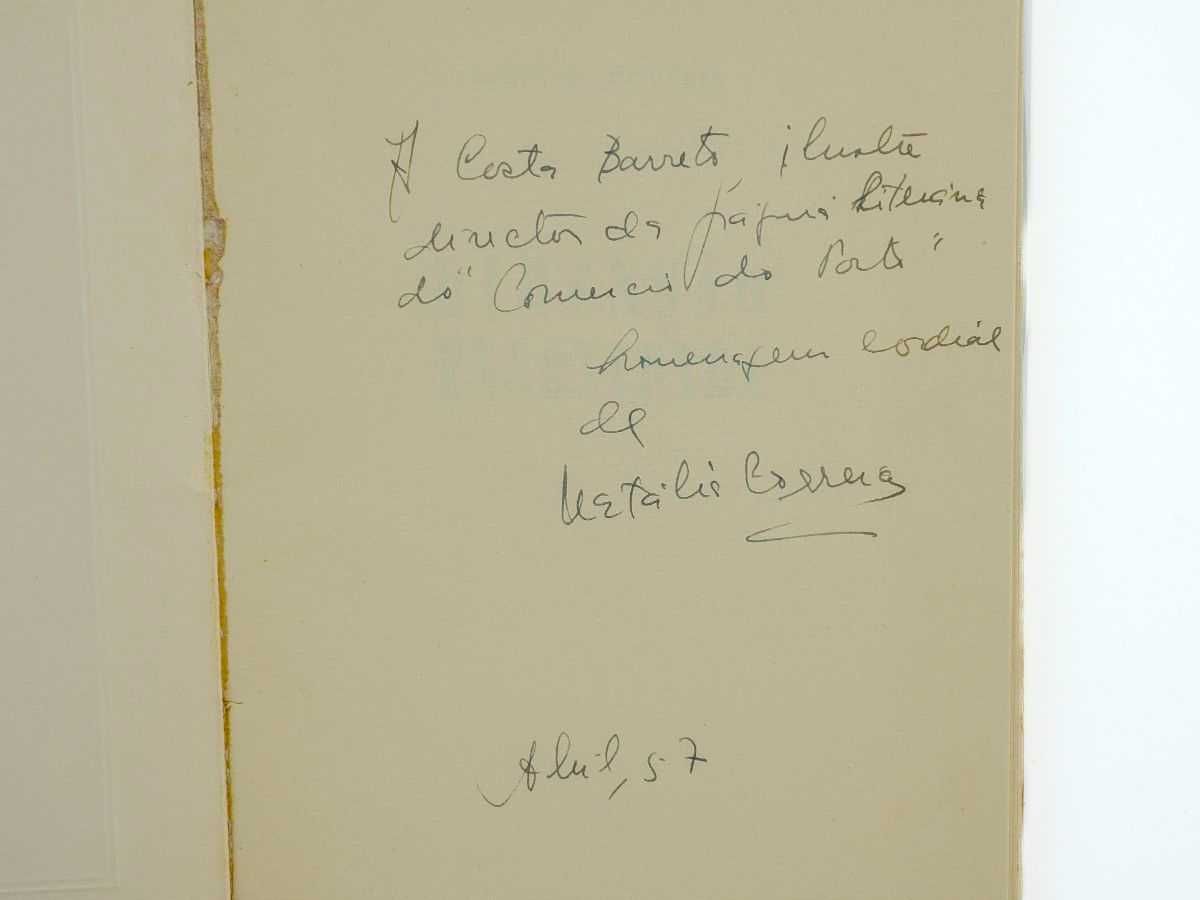 A Costa Barreto, ilustre
director da página literária
do "Comercio do Porto"
homenagem cordial
de
Natália Correia
Abril, 57